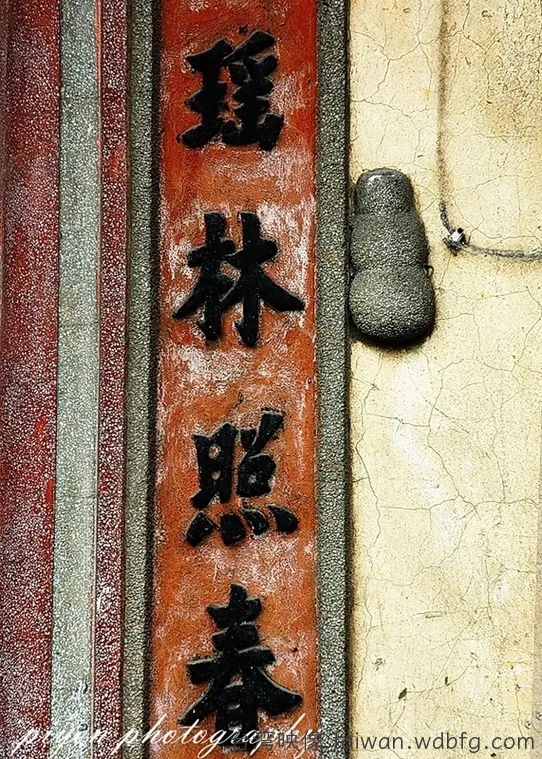 瑶林照春
piyen photography
台灣映像 taiwan.wdbfg.com